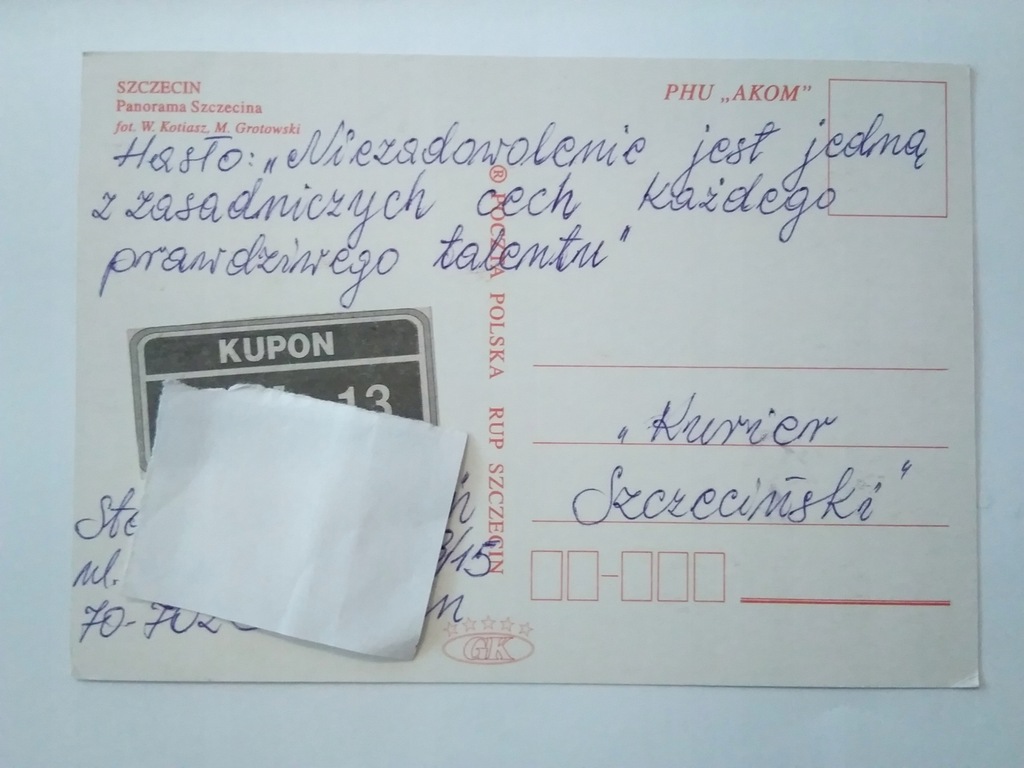 SZCZECIN
Panorama Szczecina
fot. W. Kotiasz, M. Grotowski
PHU „AKOM”
Hasło: „Niezadowolenie jest jedną
z zasadniczych cech każdego
prawdziwego talentu"
® POCZTA POLSKA RUP SZCZECIN
KUPON
13
„Kurier
Szczeciński"
ul. 3/15
70-702
GK